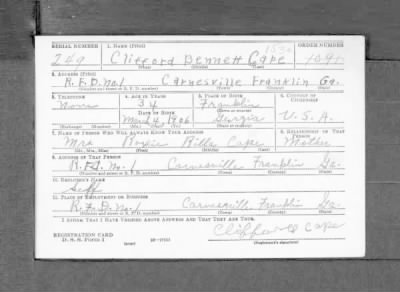 SERIAL NUMBER 1. NAME (Print) ORDER NUMBER
249 Clifford Bennett Cape 1091
(First) (Middle) (Last)
2. ADDRESS (Print)
R.F.D. No. 1 Carnesville Franklin Ga.
(Number and street or R. F. D. number) (Town) (County) (State)
3. TELEPHONE 4. AGE IN YEARS 5. PLACE OF BIRTH 6. COUNTRY OF CITIZENSHIP
None 34 Franklin
DATE OF BIRTH (Town or county)
4 1906 Georgia U.S.A.
(Exchange) (Number) (Mo.) (Day) (Yr.) (State or country)
7. NAME OF PERSON WHO WILL ALWAYS KNOW YOUR ADDRESS 8. RELATIONSHIP OF THAT PERSON
Mrs Cape Mother
(Mr., Mrs., Miss) (First) (Middle) (Last)
9. ADDRESS OF THAT PERSON
R.F.D. No. 1 Carnesville Franklin Ga.
(Number and street or R. F. D. number) (Town) (County) (State)
10. EMPLOYER'S NAME
Self
11. PLACE OF EMPLOYMENT OR BUSINESS
R.F.D. No. 1 Carnesville Franklin Ga.
(Number and street or R. F. D. number) (Town) (County) (State)
I AFFIRM THAT I HAVE VERIFIED ABOVE ANSWERS AND THAT THEY ARE TRUE.
REGISTRATION CARD Clifford Cape
D. S. S. Form 1 (over) (Registrant's signature)